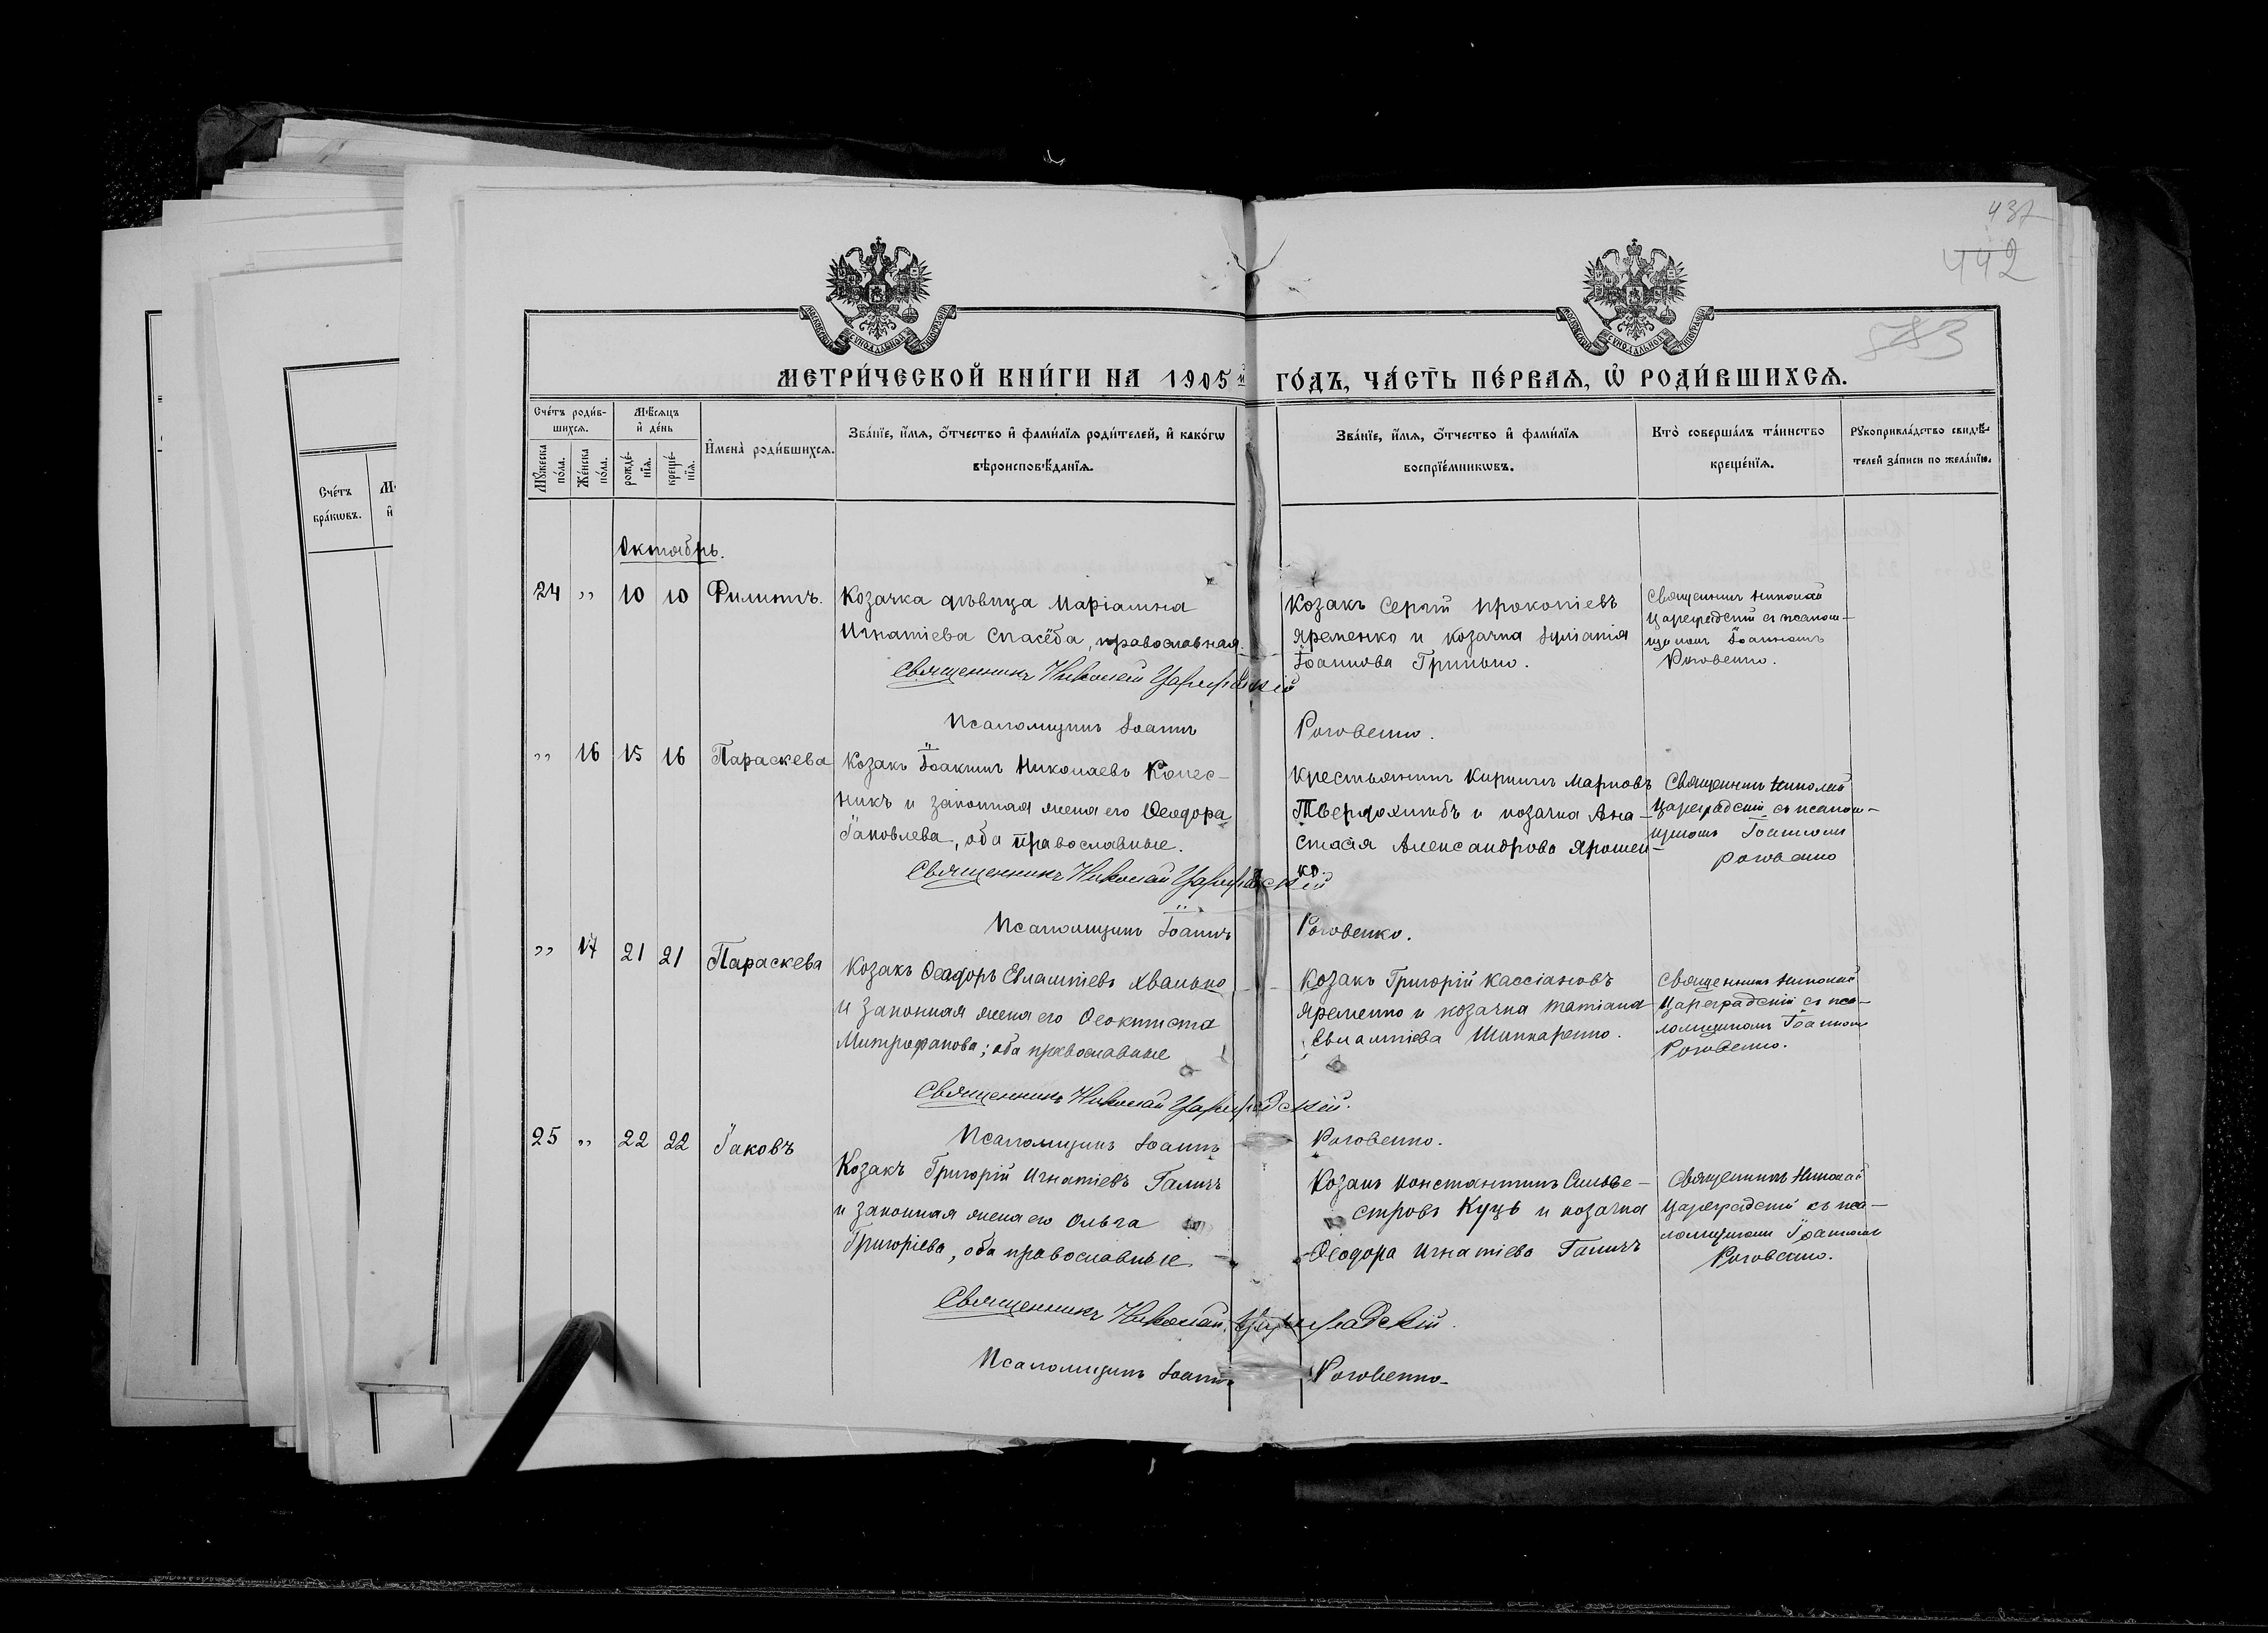 437
442
МЕТРИ́ЧЕСКОЙ КНИ́ГИ НА 1905й ГО́ДЪ, ЧА́СТЬ ПЕ́РВАѦ, Ѡ҆ РОДИ́ВШИХСѦ.
Сче́тъ роди́в-
шихсѧ.
Мꙋ́жеска по́ла.
Же́нска по́ла.
Мѣ́сѧцъ
и҆ де́нь
рожде́-
нїѧ.
креще́-
нїѧ.
И҆мена̀ роди́вшихсѧ.
Зва́нїе, и҆́мѧ, ѻ҆́тчество и҆ фами́лїѧ роди́телей, и҆ како́гѡ
вѣроисповѣ́данїѧ.
Зва́нїе, и҆́мѧ, ѻ҆́тчество и҆ фами́лїѧ
воспрїе́мникѡвъ.
Кто̀ соверша́лъ та́инство
креще́нїѧ.
Рꙋкоприкла́дство свидѣ́-
телей за́писи по жела́нїю.
Сче́тъ
бра́кѡвъ.
Октябрь.
24 „ 10 10 Филиппъ.
Козачка дѣвица Маріамна
Игнатіева Спасёба, православная.
Священникъ Николай Цареградскій
Псаломщикъ Іоаннъ Роговенко.
Козакъ Сергій Прокопіевъ
Яременко и козачка
Іоаннова Гринько.
Священникъ Николай
Цареградскій съ псалом-
щикомъ Іоанномъ
Роговенко.
„ 16 15 16 Параскева
Козакъ Іоакимъ Николаевъ Колес-
никъ и законная жена его Ѳеодора
Іаковлева, оба православные.
Священникъ Николай Цареградскій
Псаломщикъ Іоаннъ Роговенко.
Крестьянинъ Кириллъ Марковъ
Твердохлибъ и козачка Ана-
стасія Александрова Ярошен-
ко.
Священникъ Николай
Цареградскій съ псалом-
щикомъ Іоанномъ
Роговенко
„ 17 21 21 Параскева
Козакъ Ѳеодоръ Евлампіевъ Хванько
и законная жена его Ѳеоктиста
Митрофанова; оба православные
Священникъ Николай Цареградскій.
Псаломщикъ Іоаннъ Роговенко.
Козакъ Григорій Кассіановъ
Яременко и козачка Татіана
Евлампіева Шинкаренко.
Священникъ Николай
Цареградскій съ пса-
ломщикомъ Іоанномъ
Роговенко.
25 „ 22 22 Іаковъ
Козакъ Григорій Игнатіевъ Галичъ
и законная жена его Ольга
Григоріева, оба православные
Священникъ Николай Цареградскій.
Псаломщикъ Іоаннъ Роговенко.
Козакъ Константинъ Сильве-
стровъ Куцъ и козачка
Ѳеодора Игнатіева Галичъ
Священникъ Николай
Цареградскій съ пса-
ломщикомъ Іоанномъ
Роговенко.